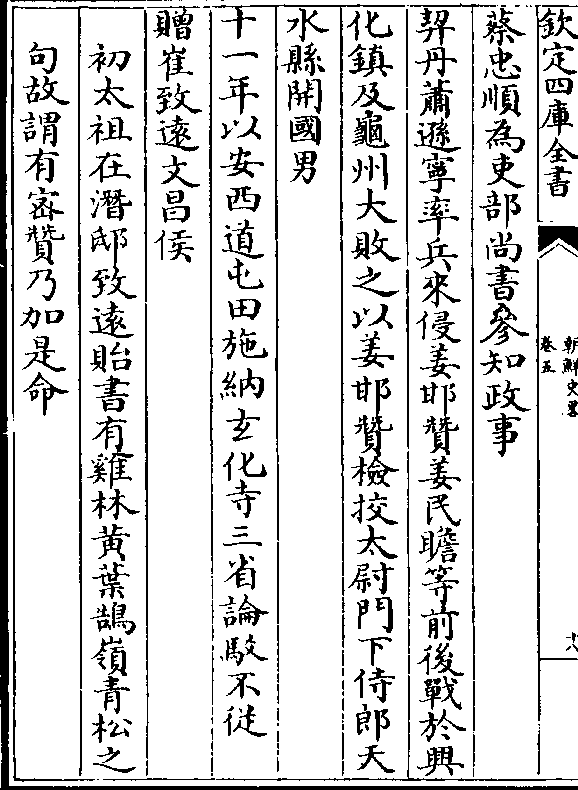 欽定四庫全書
朝鮮史畧
卷五
十八
蔡忠順為吏部尚書參知政事
契丹蕭遜寧率兵來侵姜邯贊姜民瞻等前後戰於興
化鎮及龜州大敗之以姜邯贊檢挍太尉門下侍郎天
水縣開國男
十一年以安西道屯田施納玄化寺三省論駮不從
贈崔致遠文昌侯
初太祖在潛邸致遠貽書有雞林黃葉鵠嶺青松之
句故謂有密贊乃加是命